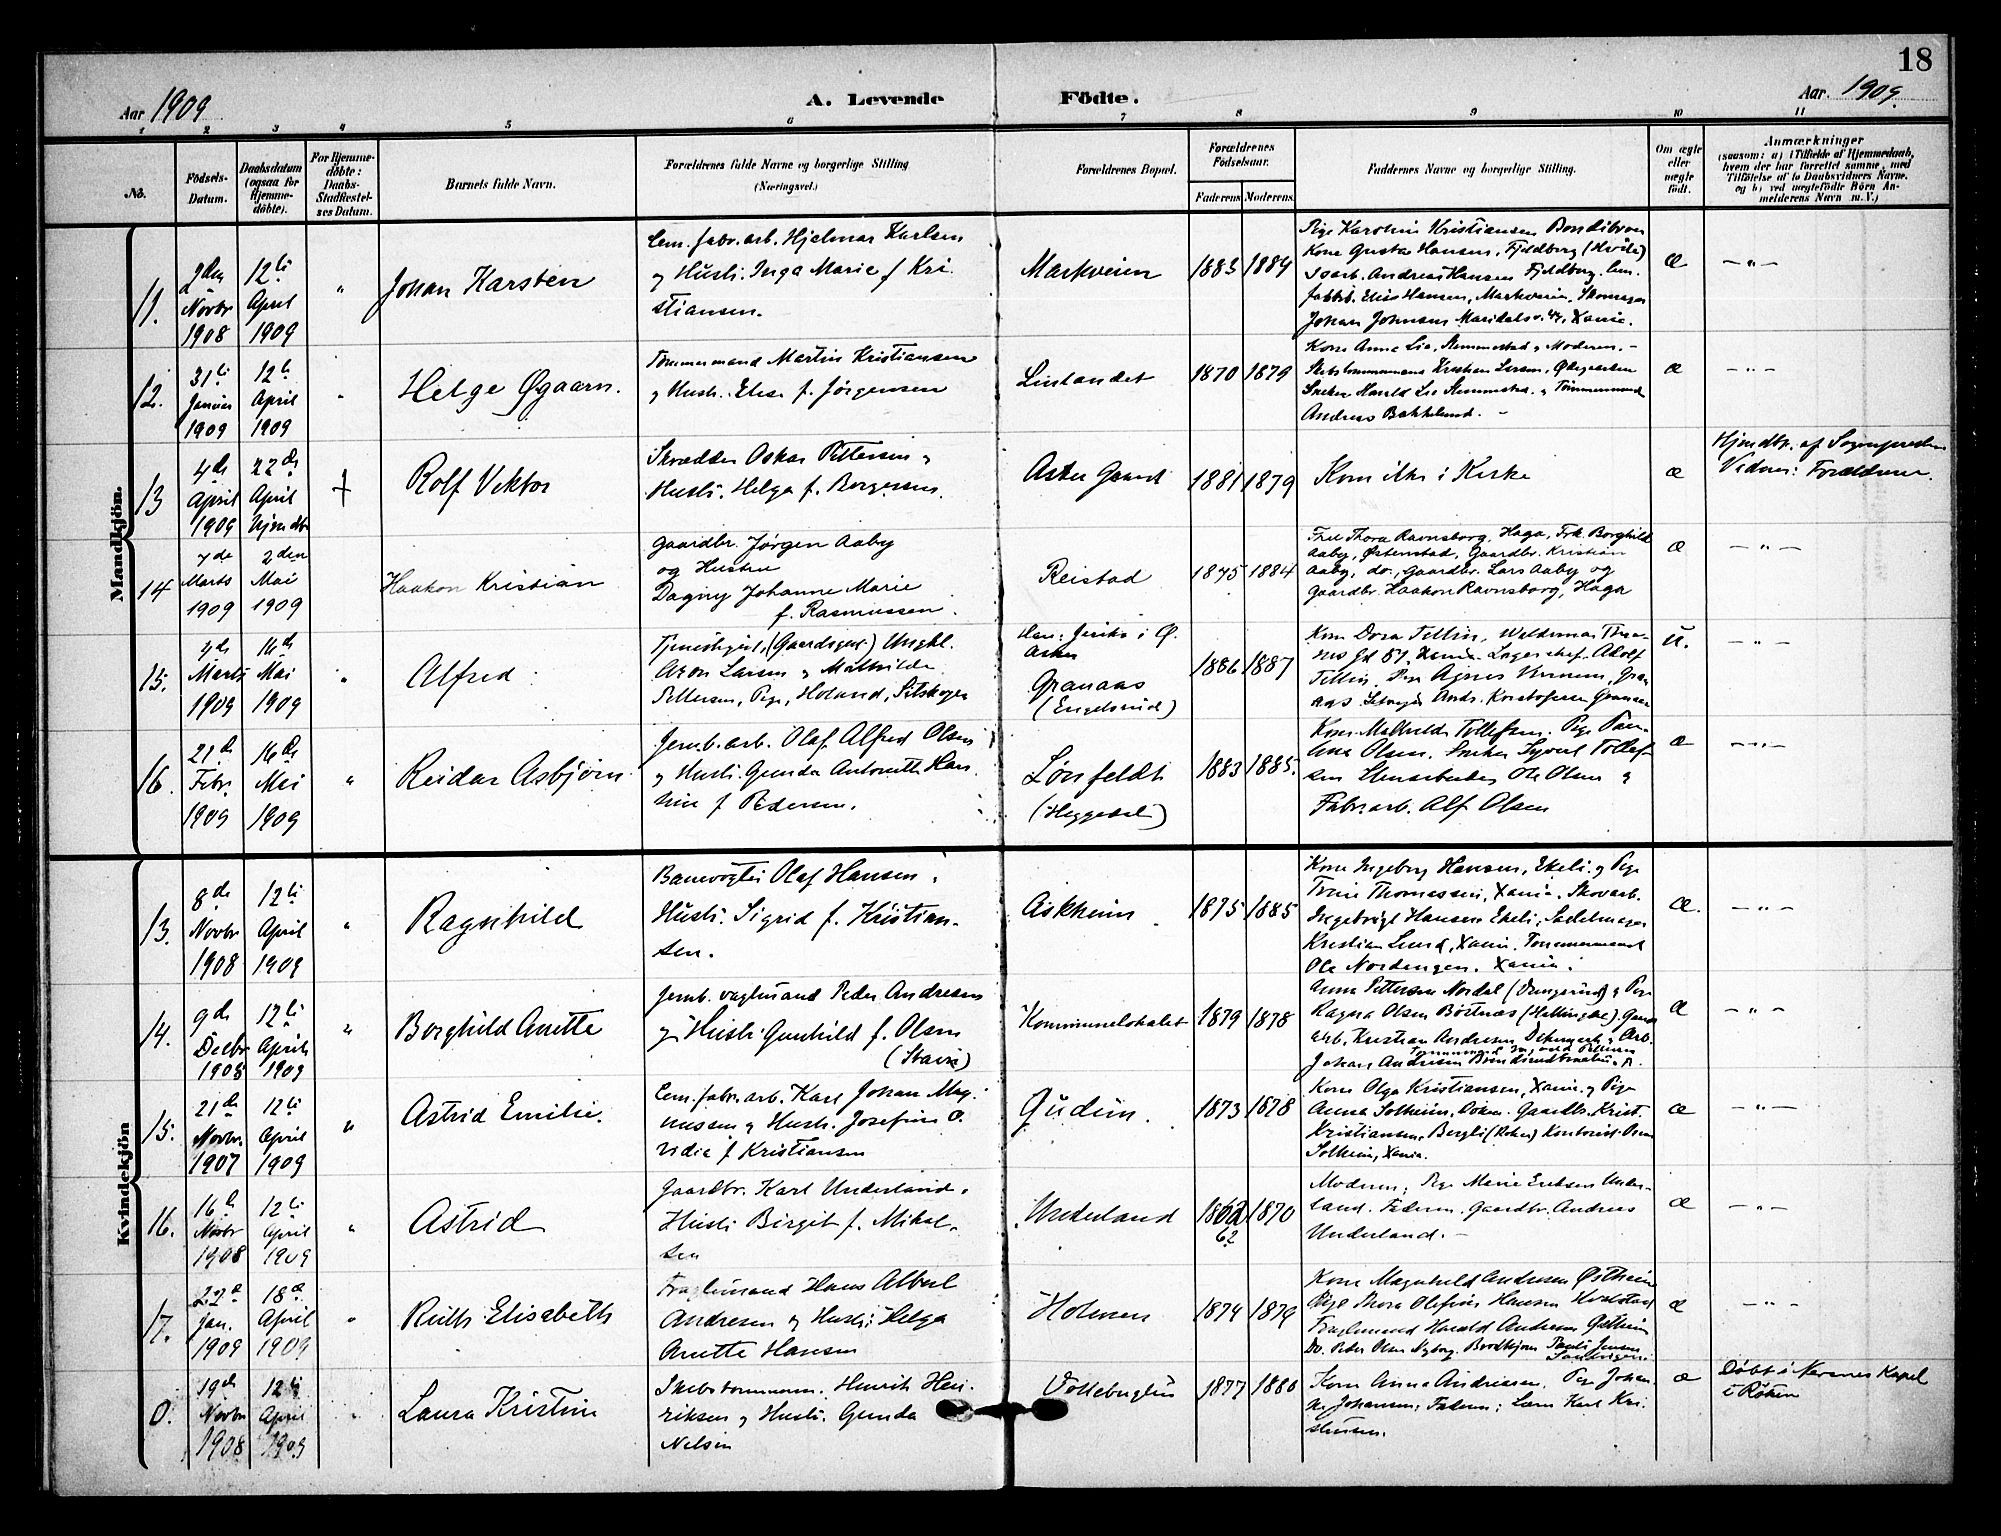 18
Aar 1909
A. Levende
Födte.
Aar. 1909
1 2 3 4 5 6 7 8 9 10 11
No.
Födsels-
Datum.
Daabsdatum
(ogsaa for
Hjemme-
döbte).
For Hjemme-
döbte:
Daabs-
Stadfæstel-
ses Datum.
Barnets fulde Navn.
Forældrenes fulde Navne og borgerlige Stilling
(Næringsvei.)
Forældrenes Bopæl.
Forældrenes
Födselsaar.
Faderens Moderens
Faddernes Navne og borgerlige Stilling.
Om ægte
eller
uægte
födt.
Anmærkninger
(saasom: a) i Tilfælde af Hjemmedaab,
hvem der har forrettet samme, med
Tilföielse af to Daabsvidners Navne.
og b) ved uægtefödte Börn An-
melderens Navn m.V.)
Mandkjön.
11.
2den
Novbr
1908
12te
April
1909
"
Johan Karsten
Cem. fabr. arb. Hjelmar Karlsen
og Hustr. Inga Marie f Kri-
stiansen.
Markveien
1883 1884
Pige Karoline Kristiansen Bondibroen
Kone Gusta Hansen, Fjeldberg (Hvile)
Isarb. Andreas Hansen Fjeldberg. Cem.
fabrb. Elias Hansen, Markveien, Skomager
Johan Johnsen Maridalsv. 44, Xania.
æ
— " —
12.
31te
Januar
1909
12te
April
1909
"
Helge Øgaarn.
Tømmermand Martin Kristiansen
og Hustr. Elise f. Jørgensen
Linlandet
1870 1879
Kone Anna Lie, Slemmestad og Moderen. -
Snekker Harald Lie Slemmestad og Tømmermand
Andreas Bakkelund. -
æ
— " —
13
4de
April
1909
22de
April
1909
Hjemdbt
+
Rolf Viktor
Skrædder Oskar Pettersen og
Hustr. Helga f. Borgersen.
Asker Gaard
1881 1879
Kom ikke i Kirke
æ
Hjemdbt. af Sognepresten
Vidner: Forældrene.
14
7de
Marts
1909
2den
Mai
1909
Haakon Kristian
Gaardbr. Jørgen Aaby
og Hustru
Dagny Johanne Marie
f. Rasmussen.
Reistad
1875 1884
Frue Thora Ravnsborg, Haga, Frk. Borghild
Aaby, Østenstad, Gaardbr. Kristian
Aaby, do., Gaardbr. Lars Aaby og
Gaardbr. Haakon Ravnsborg, Haga
æ
— " —
15.
4de
Marts
1909
16de
Mai
1909
"
Alfred
Tjenestegut, (Gaardsgut) Ungkl.
Aron Larsen og Mathilde
Pettersen, Pige, Holand, Setskogen
Asker
Granaas
(Engelsrud)
1886 1887
Kone Dora Tellin, Waldemar Thra-
nes Gd 51, Xania. Lagerchef. Adolf
Tellin, Pige Agnes
u.
— " —
16.
21de
Febr.
1909
16de
Mai
1909
"
Reidar Asbjørn
Jernb. arb. Olaf Alfred Olsen
og Hustr. Gunda Antonette Han-
sine f Pedersen.
Lønfeldt
(Heggedal)
1883 1885.
Kone Mathilde Tollefsen. Pige Pau-
line Olsen. Snekker Syvert Tollef-
sen Stenarbeider Ole Olsen og
Fabr. arb. Alf Olsen
æ
— " —
Kvindekjön
13.
8de
Novbr
1908
12te
April
1909
"
Ragnhild
Banevogter Olaf Hansen.
Hustr. Sigrid f. Kristian-
sen.
Askheim
1875 1885
Kone Ingeborg Hansen, Ekeli og Pige
Trine Thomassen, Xania. Skovarb.
Ingebrigt Hansen Ekeli, Sadelmager
Kristian Lund, Xania. Tømmermand
Ole Nordengen. Xania.
æ.
— " —
14.
9de
Decbr
1908
12te
April
1909
"
Borghild Anette
Jernb. vogtmand Peder Andresen
og Hustr. Gunhild f. Olsen
(Stavik)
Kommunelokalet
1879 1878
Anna Pettersen Nordal (Dungerud) og Pige
Ragna Olsen Børtnæs (Hallingdal). Gaard
arb. Kristian Andresen Dikemark og Arb.
Johan Andresen
æ
— " —
15.
21de
Novbr.
1907
12te
April
1909
"
Astrid Emilie.
Cem. fabr. arb. Karl Johan Mag-
nussen og Hustr. Josefine O-
vidia f Kristiansen
Gudum.
1873 1878
Kone Olga Kristiansen, Xania. og Pige
Anna Solheim, Asker. Gaardbr. Krist.
Kristiansen, Bergli (Røken) Kontorist Oscar
Solheim, Xania.
æ
— " —
16.
16de
Novbr
1908
12te
April
1909
"
Astrid
Gaardbr. Karl Underland.
Hustr. Birgit f. Mikal-
sen
Underland
62
1870
Moderen, Pige Marie Eriksen Under-
land. Faderen. Gaardbr. Andreas
Underland. -
æ
— " —
17.
22de
Jan.
1909
18de
April
1909
"
Ruth Elisabeth
Fraglemand Hans Albert
Andresen og Hustr: Helga
Anette Hansen
Holmen
1874 1879
Kone Magnhild Andresen Østheim
Pige Thora Olefine Hansen Hvalstad
Fraglemand Harald Andresen Østheim
Do. Peder Olsen Nyborg.
æ
— " —
0.
19de
Novbr
1908
12te
April
1909
"
Laura Kristine
Skibstømmerm. Henrik Hen-
riksen og Hustr. Gunda
Nelsen
Vollebugten
1877 1880
Kone Anna Andresen. Pige Johan-
ne Johansen, Faderen; Karl Kri-
stensen.
æ
Døbt i Nærsnes Kapel
i Røken